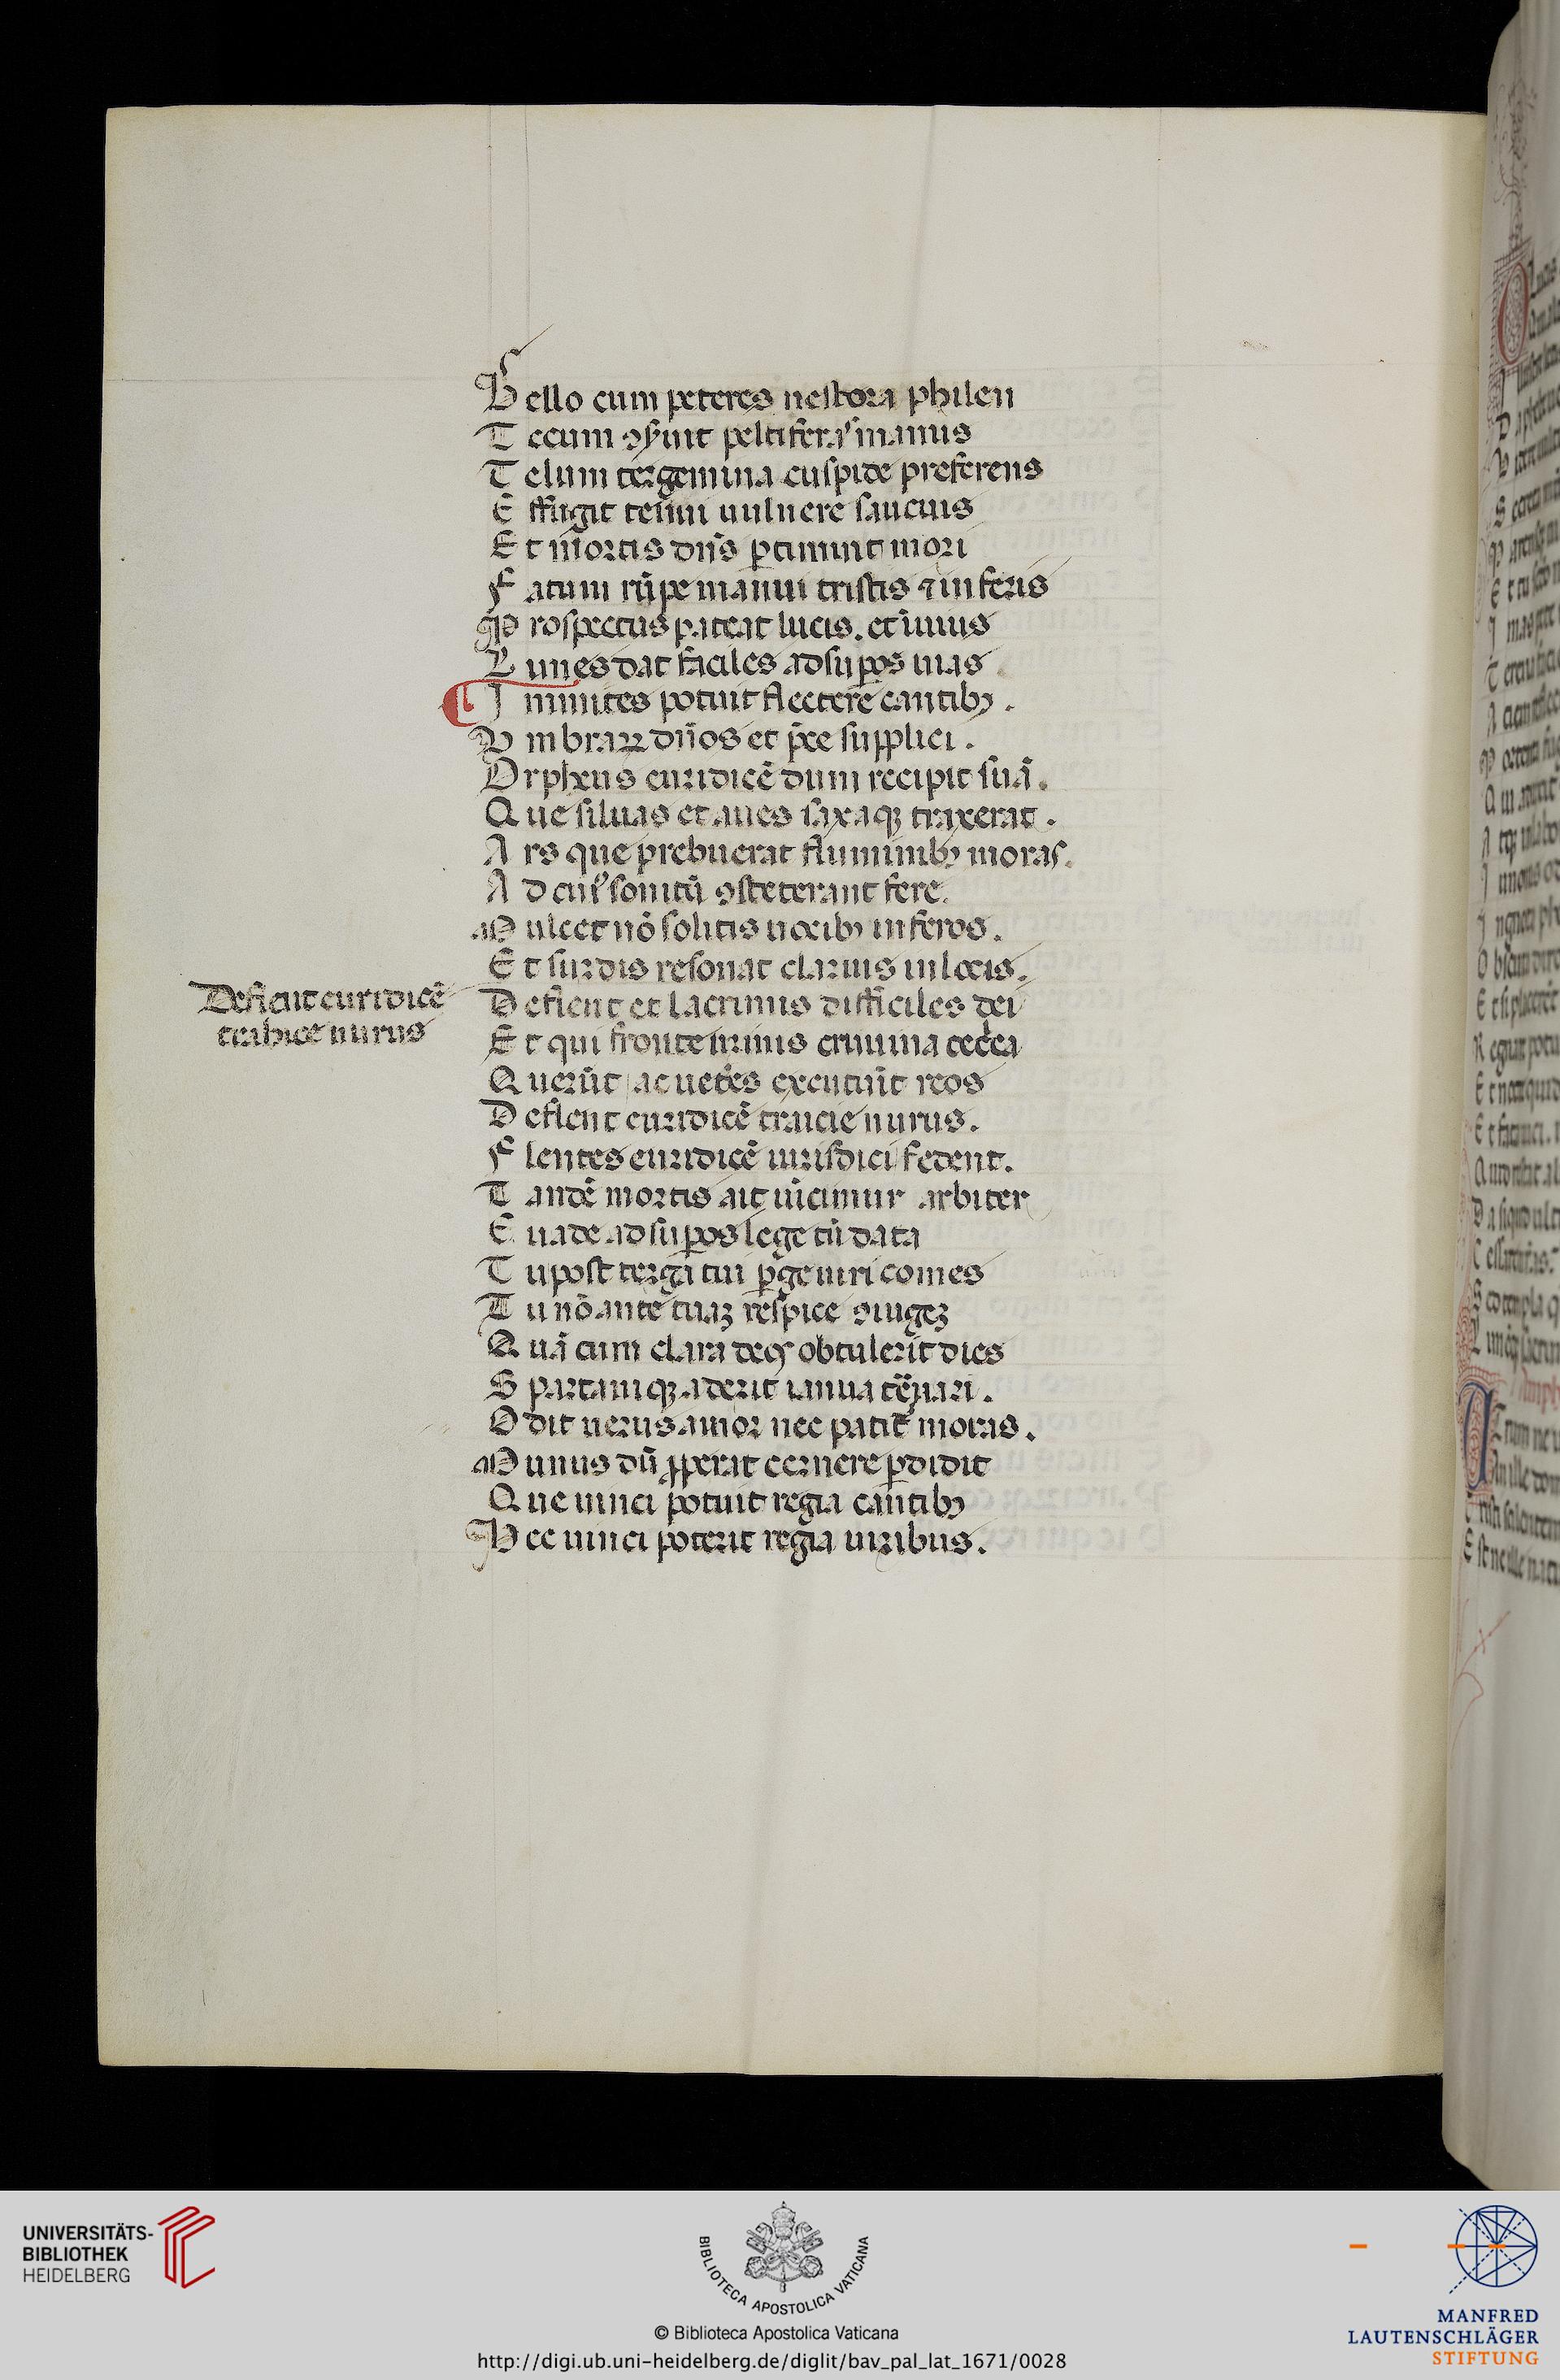 Bello cum peteres nestora philen
Tecum ꝯs̄uit peltiferaſ manus
Telum tergemina cuspide preferens
Effugit tenui uulnere saucius
Et mortis dn̄s ꝑtimuit mori
Fatum rūpe manui tristis ⁊ inferis
Prospectus pateat lucis. et inuius
Limes dat faciles ad suꝑos uias
Inmites potuit flectere cantibꝫ.
Vmbraꝝ dn̄os et p̄ce supplici.
Orpheus euridicē dum recipit suā.
Que siluas et aues saxaqꝫ traxerat.
Ars que prebuerat fluminibꝫ moras.
Ad cuiꝰ sonitū ꝯsteterant fere.
Mulcet nō solitis uocibꝫ inferos.
Et surdis resonat clarius in locis.
Deflent et lacrimis difficiles dei
Et qui fronte nimis crimina tetrica
Querūt ac ueteres excutiūt reos
Deflent euridicē traicie nurus.
Flentes euridicē iurisdici sedent.
Tandē mortis ait uīcimur arbiter
Euade ad suꝑos lege tū data
Tu post terga tui ꝑge uiri comes
Tu nō ante tuaꝫ respice ꝯiugeꝫ
Quā cum clara deos obtulerit dies
Spartaniqꝫ aderit ianua tēnari.
Odit uerus amor nec patit̄ moras.
Munus dū ꝓperat cernere ꝑdidit
Que uinci potuit regia cantibꝫ
Hec uinci poterit regia uiribus.
Deflent euridicē
trahice nurus
UNIVERSITÄTS-
BIBLIOTHEK
HEIDELBERG
BIBLIOTECA APOSTOLICA VATICANA
© Biblioteca Apostolica Vaticana
http://digi.ub.uni-heidelberg.de/diglit/bav_pal_lat_1671/0028
MANFRED
LAUTENSCHLÄGER
STIFTUNG